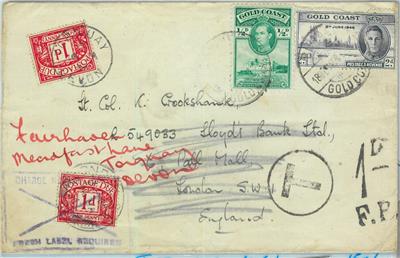 GOLD COAST
½D
½D
GOLD COAST
8TH JUNE 1946
POSTAGE & REVENUE
2D
POSTAGE DUE
1D
GOLD CO
Lt. Col. K. Crookshank,
549033
Lloyds Bank Ltd.,
Pall Mall
London S.W.1
England.
Fairhaven
Meadfoot Lane
Torquay
Devon
T
1D
F.P.
POSTAGE DUE
1d
CHARGE
FRESH LABEL REQUIRED